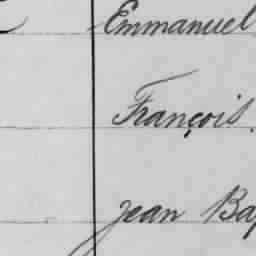 Emmanuel
François.
Jean Bap